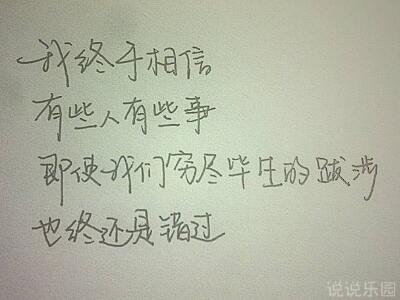 我终于相信
有些人有些事
即使我们穷尽毕生的跋涉
也终还是错过
说说乐园